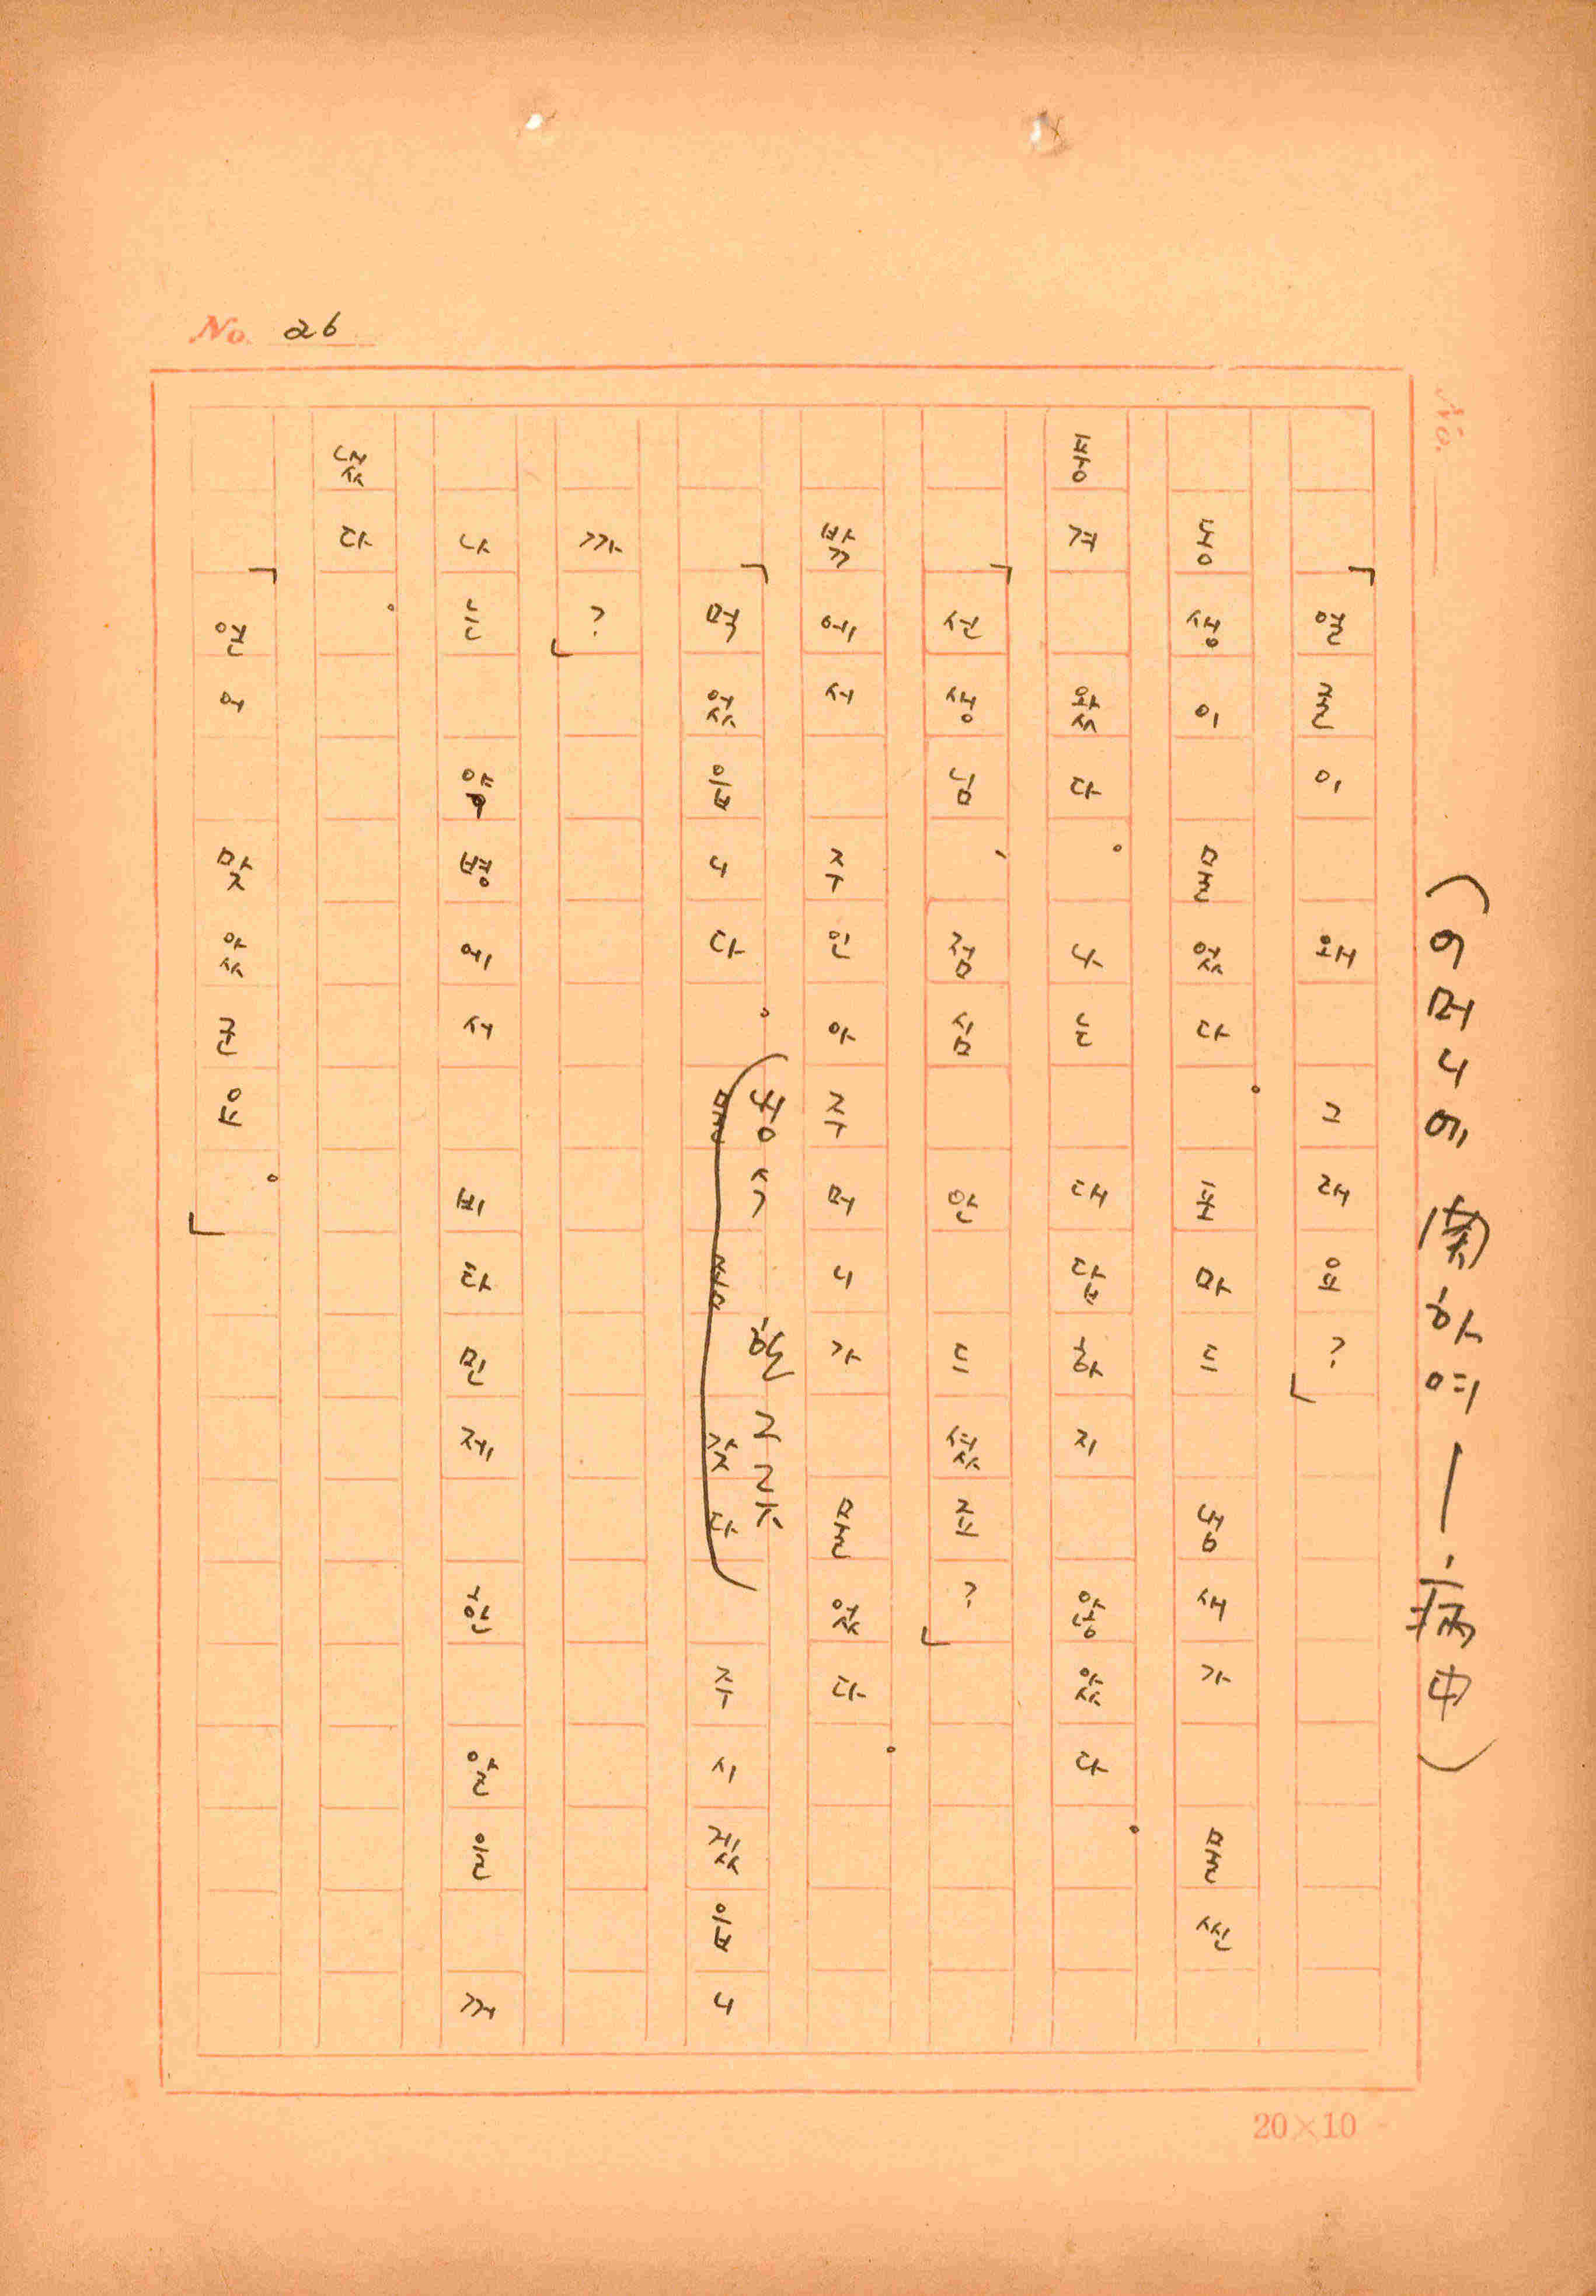 No. 26
(어머니에 関하여 — 病中)
「얼굴이 왜 그래요?」
동생이 물었다. 포마드 냄새가 물씬
풍겨 왔다. 나는 대답하지 않았다.
「선생님, 점심 안 드셨죠?」
밖에서 주인 아주머니가 물었다.
「먹었읍니다. 냉수 한 그릇 주시겠읍니
까?」
나는 약병에서 비타민제 한 알을 꺼
냈다.
「얻어 맞았군요.」
No.
20×10